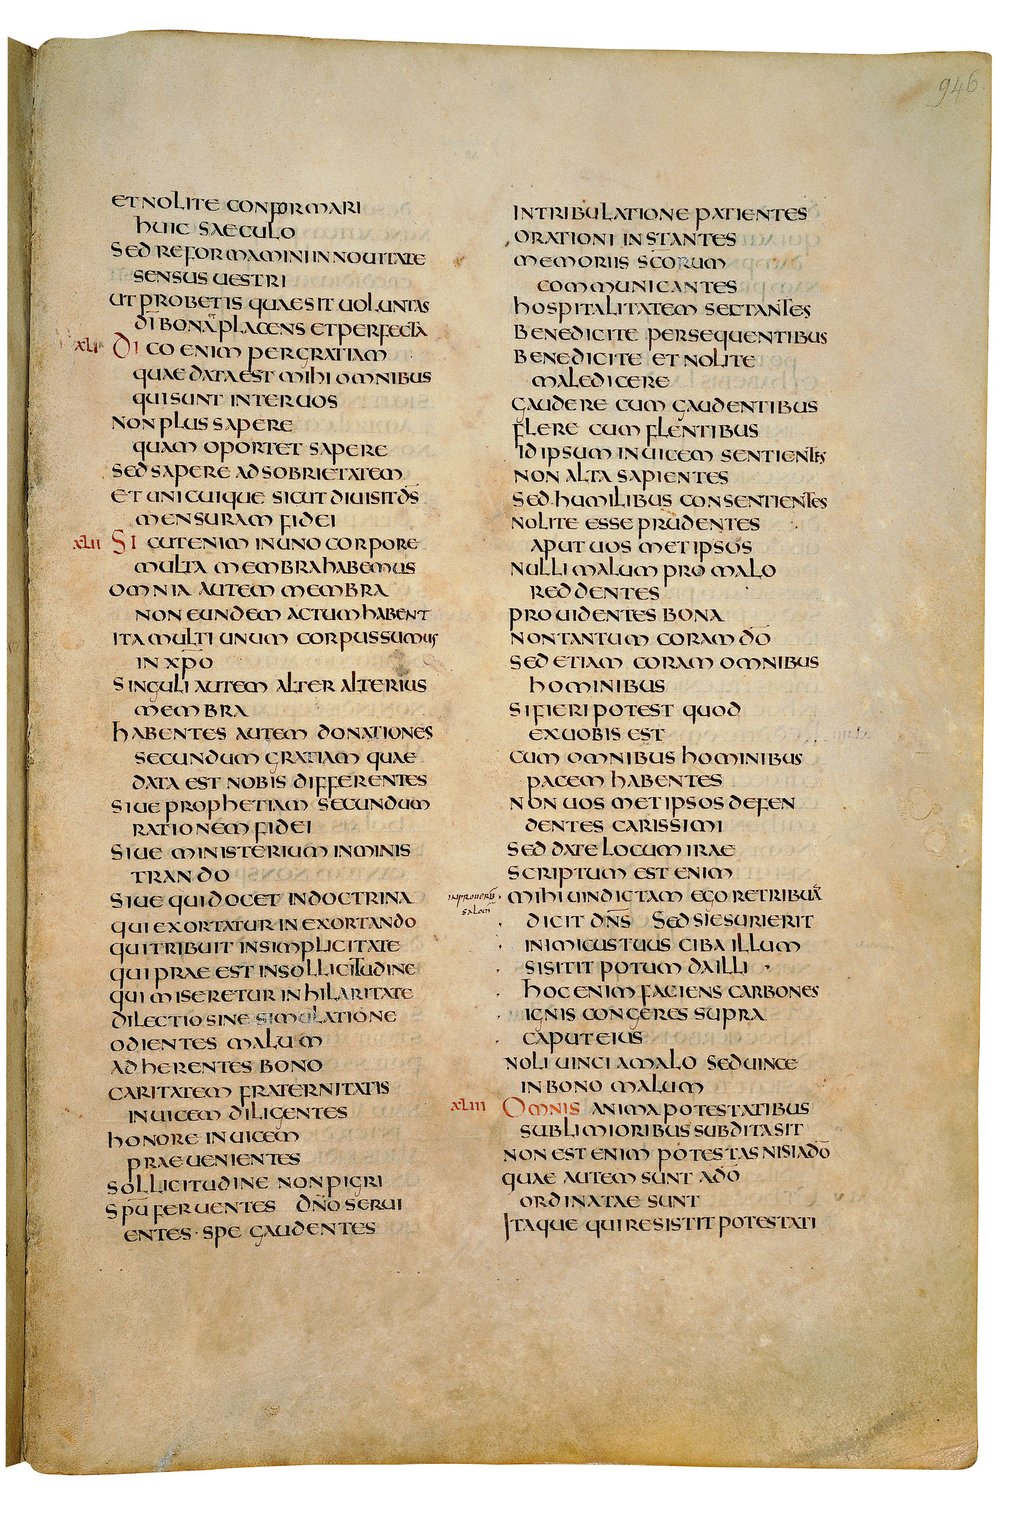 946
ET NOLITE CONFORMARI
HUIC SAECULO
SED REFORMAMINI IN NOUITATE
SENSUS UESTRI
UT PROBETIS QUAE SIT UOLUNTAS
DI BONA ET PLACENS ET PERFECTA
XLI DICO ENIM PER GRATIAM
QUAE DATA EST MIHI OMNIBUS
QUI SUNT INTER UOS
NON PLUS SAPERE
QUAM OPORTET SAPERE
SED SAPERE AD SOBRIETATEM
ET UNICUIQUE SICUT DIUISIT D̄S
MENSURAM FIDEI
XLII SICUT ENIM IN UNO CORPORE
MULTA MEMBRA HABEMUS
OMNIA AUTEM MEMBRA
NON EUNDEM ACTUM HABENT
ITA MULTI UNUM CORPUS SUMUS
IN XP̄O
SINGULI AUTEM ALTER ALTERIUS
MEMBRA
HABENTES AUTEM DONATIONES
SECUNDUM GRATIAM QUAE
DATA EST NOBIS DIFFERENTES
SIUE PROPHETIAM SECUNDUM
RATIONEM FIDEI
SIUE MINISTERIUM IN MINIS
TRANDO
SIUE QUI DOCET IN DOCTRINA
QUI EXORTATUR IN EXORTANDO
QUI TRIBUIT IN SIMPLICITATE
QUI PRAEEST IN SOLLICITUDINE
QUI MISERETUR IN HILARITATE
DILECTIO SINE SIMULATIONE
ODIENTES MALUM
ADHERENTES BONO
CARITATEM FRATERNITATIS
INUICEM DILIGENTES
HONORE INUICEM
PRAEUENIENTES
SOLLICITUDINE NON PIGRI
SPŪ FERUENTES DN̄O SERUI
ENTES · SPE GAUDENTES
IN TRIBULATIONE PATIENTES
ORATIONI INSTANTES
MEMORIIS SC̄ORUM
COMMUNICANTES
HOSPITALITATEM SECTANTES
BENEDICITE PERSEQUENTIBUS
BENEDICITE ET NOLITE
MALEDICERE
GAUDERE CUM GAUDENTIBUS
FLERE CUM FLENTIBUS
ID IPSUM INUICEM SENTIENTES
NON ALTA SAPIENTES
SED HUMILIBUS CONSENTIENTES
NOLITE ESSE PRUDENTES
APUT UOS METIPSOS
NULLI MALUM PRO MALO
REDDENTES
PROUIDENTES BONA
NON TANTUM CORAM DŌ
SED ETIAM CORAM OMNIBUS
HOMINIBUS
SI FIERI POTEST QUOD
EX UOBIS EST
CUM OMNIBUS HOMINIBUS
PACEM HABENTES
NON UOS METIPSOS DEFEN
DENTES CARISSIMI
SED DATE LOCUM IRAE
SCRIPTUM EST ENIM
IN PROUERB̄ SALOM̄ MIHI UINDICTAM EGO RETRIBUĀ
DICIT DN̄S SED SI ESURIERIT
INIMICUS TUUS CIBA ILLUM
SI SITIT POTUM DA ILLI
HOC ENIM FACIENS CARBONES
IGNIS CONGERES SUPRA
CAPUT EIUS
NOLI UINCI A MALO SED UINCE
IN BONO MALUM
XLIII OMNIS ANIMA POTESTATIBUS
SUBLIMIORIBUS SUBDITA SIT
NON EST ENIM POTESTAS NISI A DŌ
QUAE AUTEM SUNT A DŌ
ORDINATAE SUNT
ITAQUE QUI RESISTIT POTESTATI